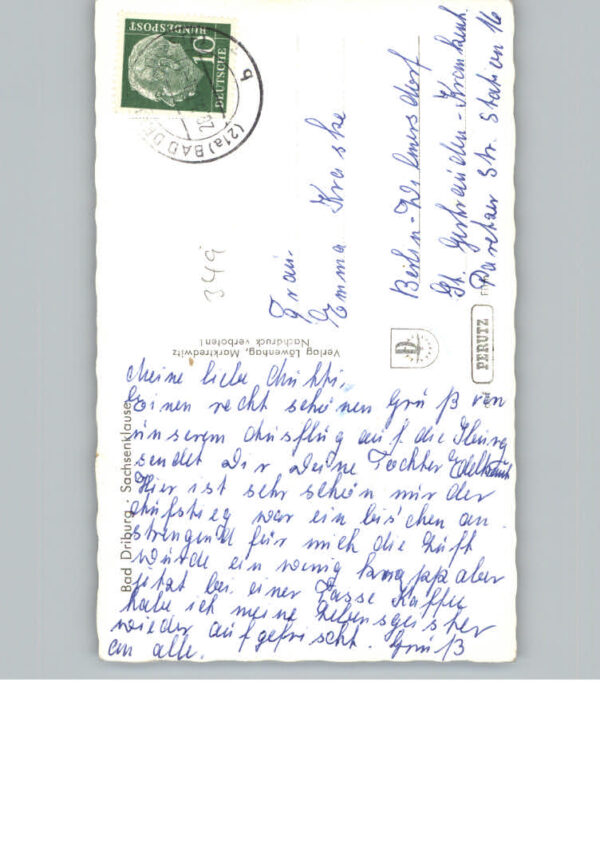 Meine liebe Mutti,
Einen recht schönen Gruß von
unserem Ausflug auf die Iburg
sendet Dir Deine Tochter Edeltraut
Hier ist sehr schön nur der
Aufstieg war ein bis'chen an-
strengend für mich die Luft
wurde ein wenig knapp aber
jetzt bei einer Tasse Kaffee
habe ich meine Lebensgeister
wieder aufgefrischt. Gruß
an alle.
Bad Driburg · Sachsenklause
Verlag Löwenhag, Marktredwitz
Nachdruck verboten!
349
Frau
Emma Kraske
Berlin-Wilmersdorf
St. Gertrauden-Krankenh.
Paretzer Str. Station 16
PERUTZ
10
DEUTSCHE
BUNDESPOST
(21a) BAD
b